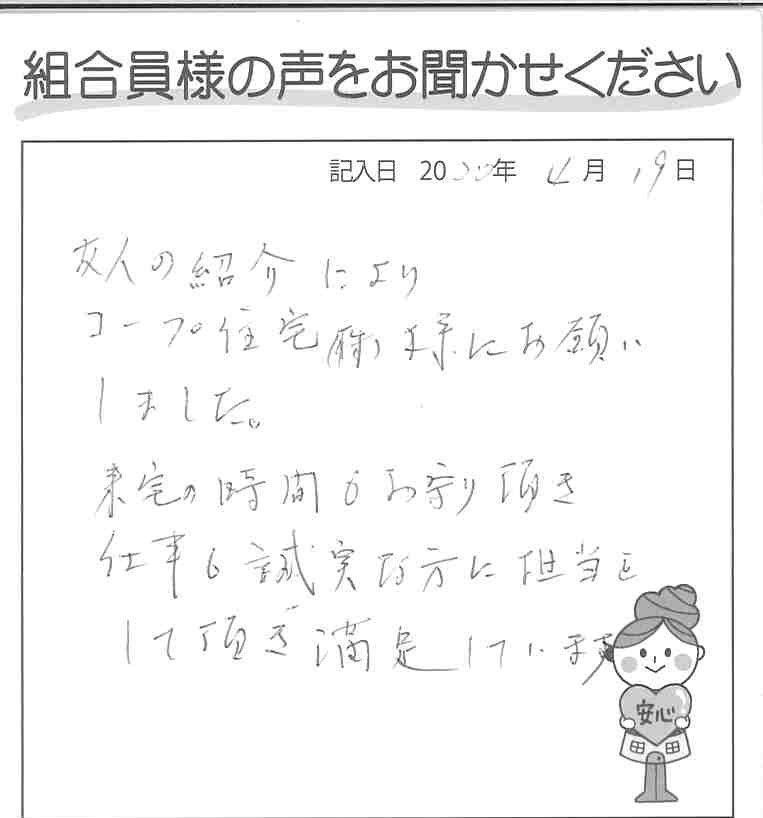 組合員様の声をお聞かせください
記入日 2020年 4月 19日
友人の紹介により
コープ住宅(株)様にお願い
しました。
来宅の時間もお守り頂き
仕事も誠実な方に担当を
して頂き満足しています
安心